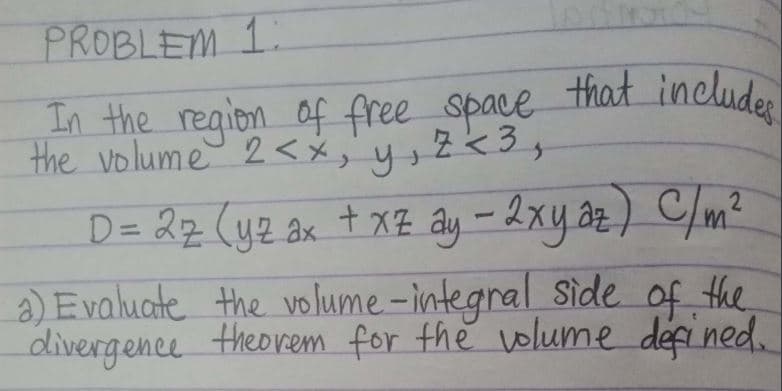 PROBLEM 1:
In the region of free space that includes
the volume 2 < x, y, z < 3,
D = 2z (yz ax + xz ay - 2xy az) C/m²
a) Evaluate the volume-integral side of the
divergence theorem for the volume defined.